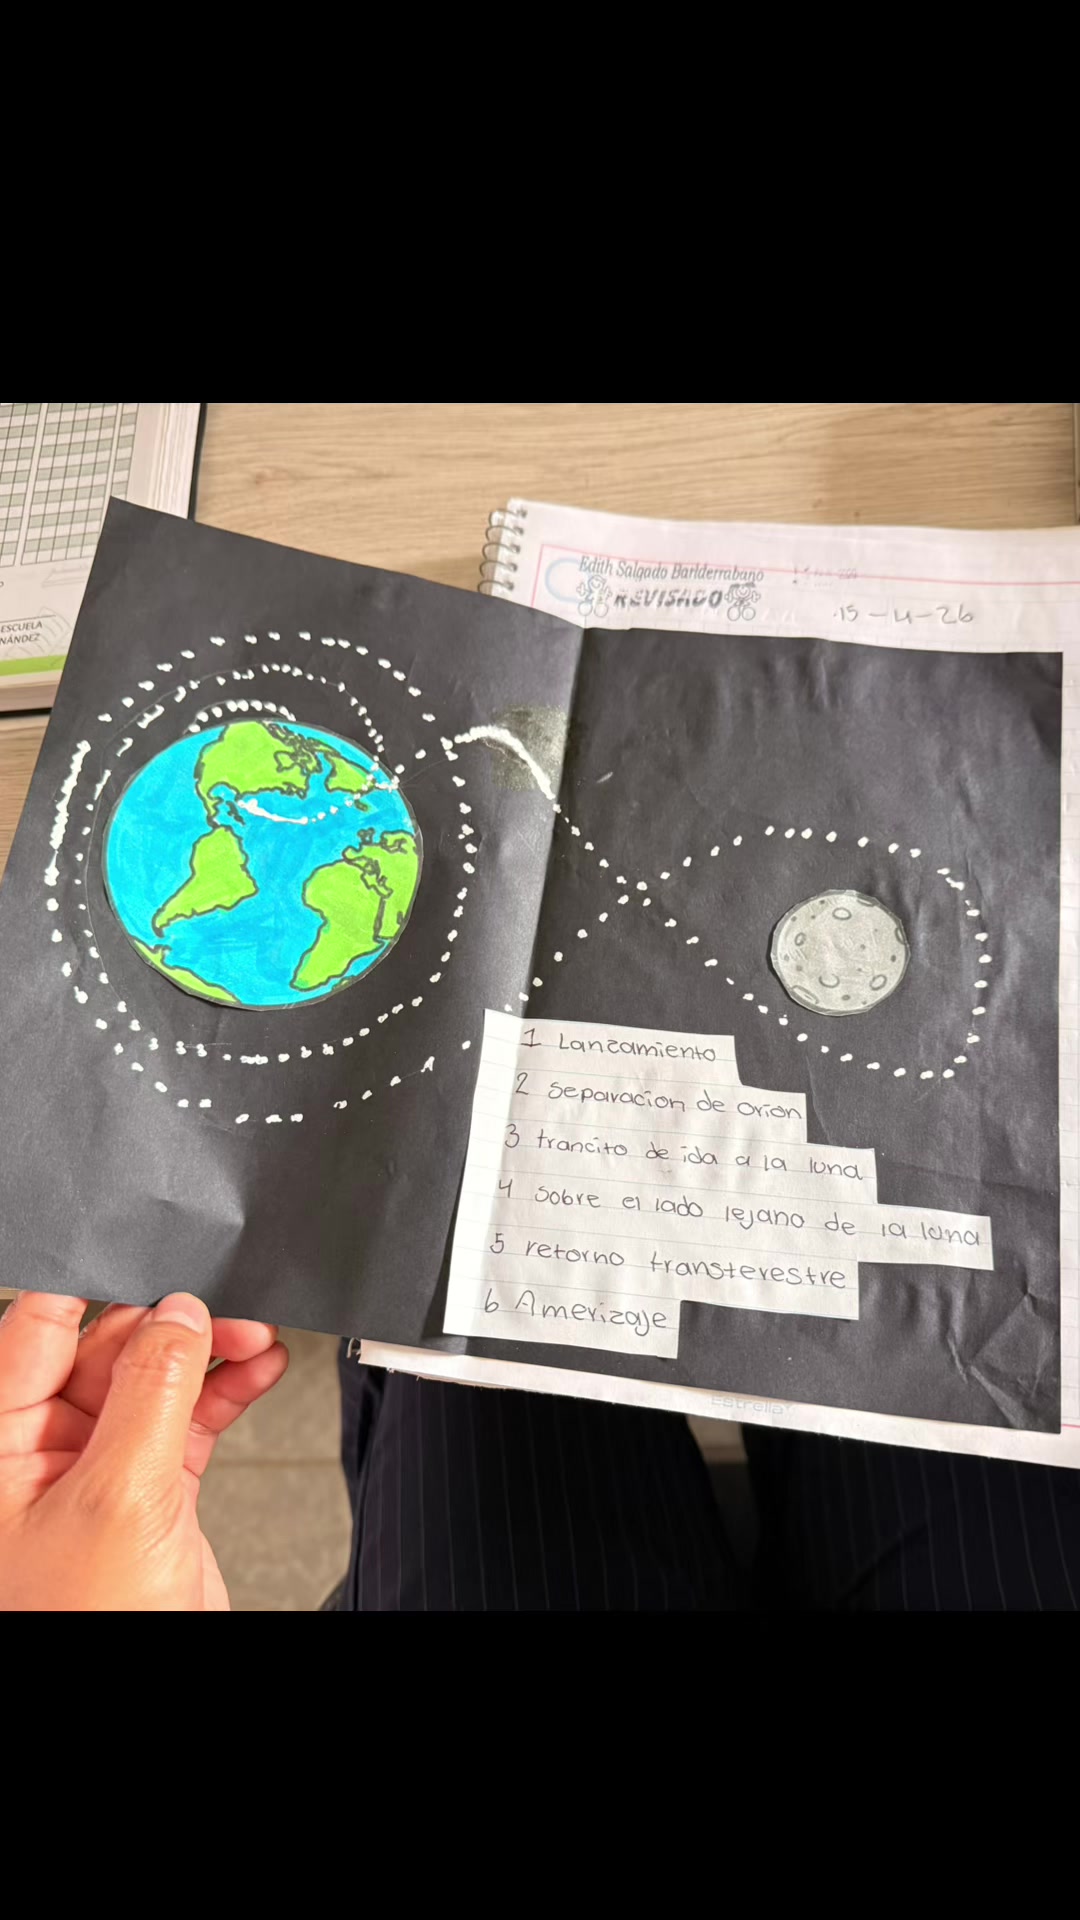 ESCUELA
NÁNDEZ
Edith Salgado Barlderrabano
REVISADO
15-4-26
1 Lanzamiento
2 separacion de orion
3 trancito de ida a la luna
4 sobre el lado lejano de la luna
5 retorno transterestre
6 Amerizaje
Estrella